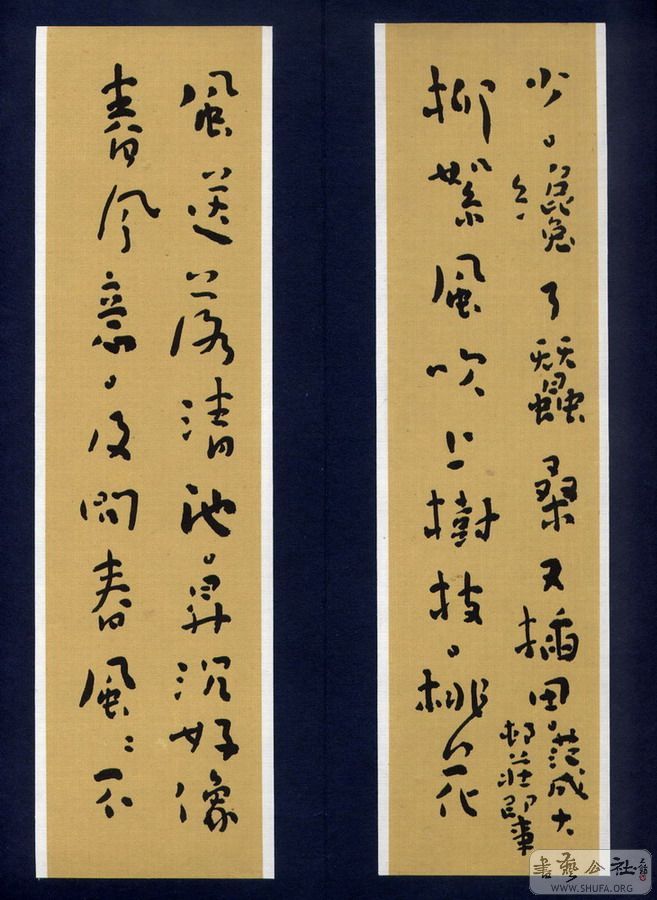 少。纔了蠶桑又插田。范成大
邨莊即事
柳絮風吹上樹枝。桃花
風送落清池。昇沉好像
春風意。及問春風〻不
書藝公社
WWW.SHUFA.ORG